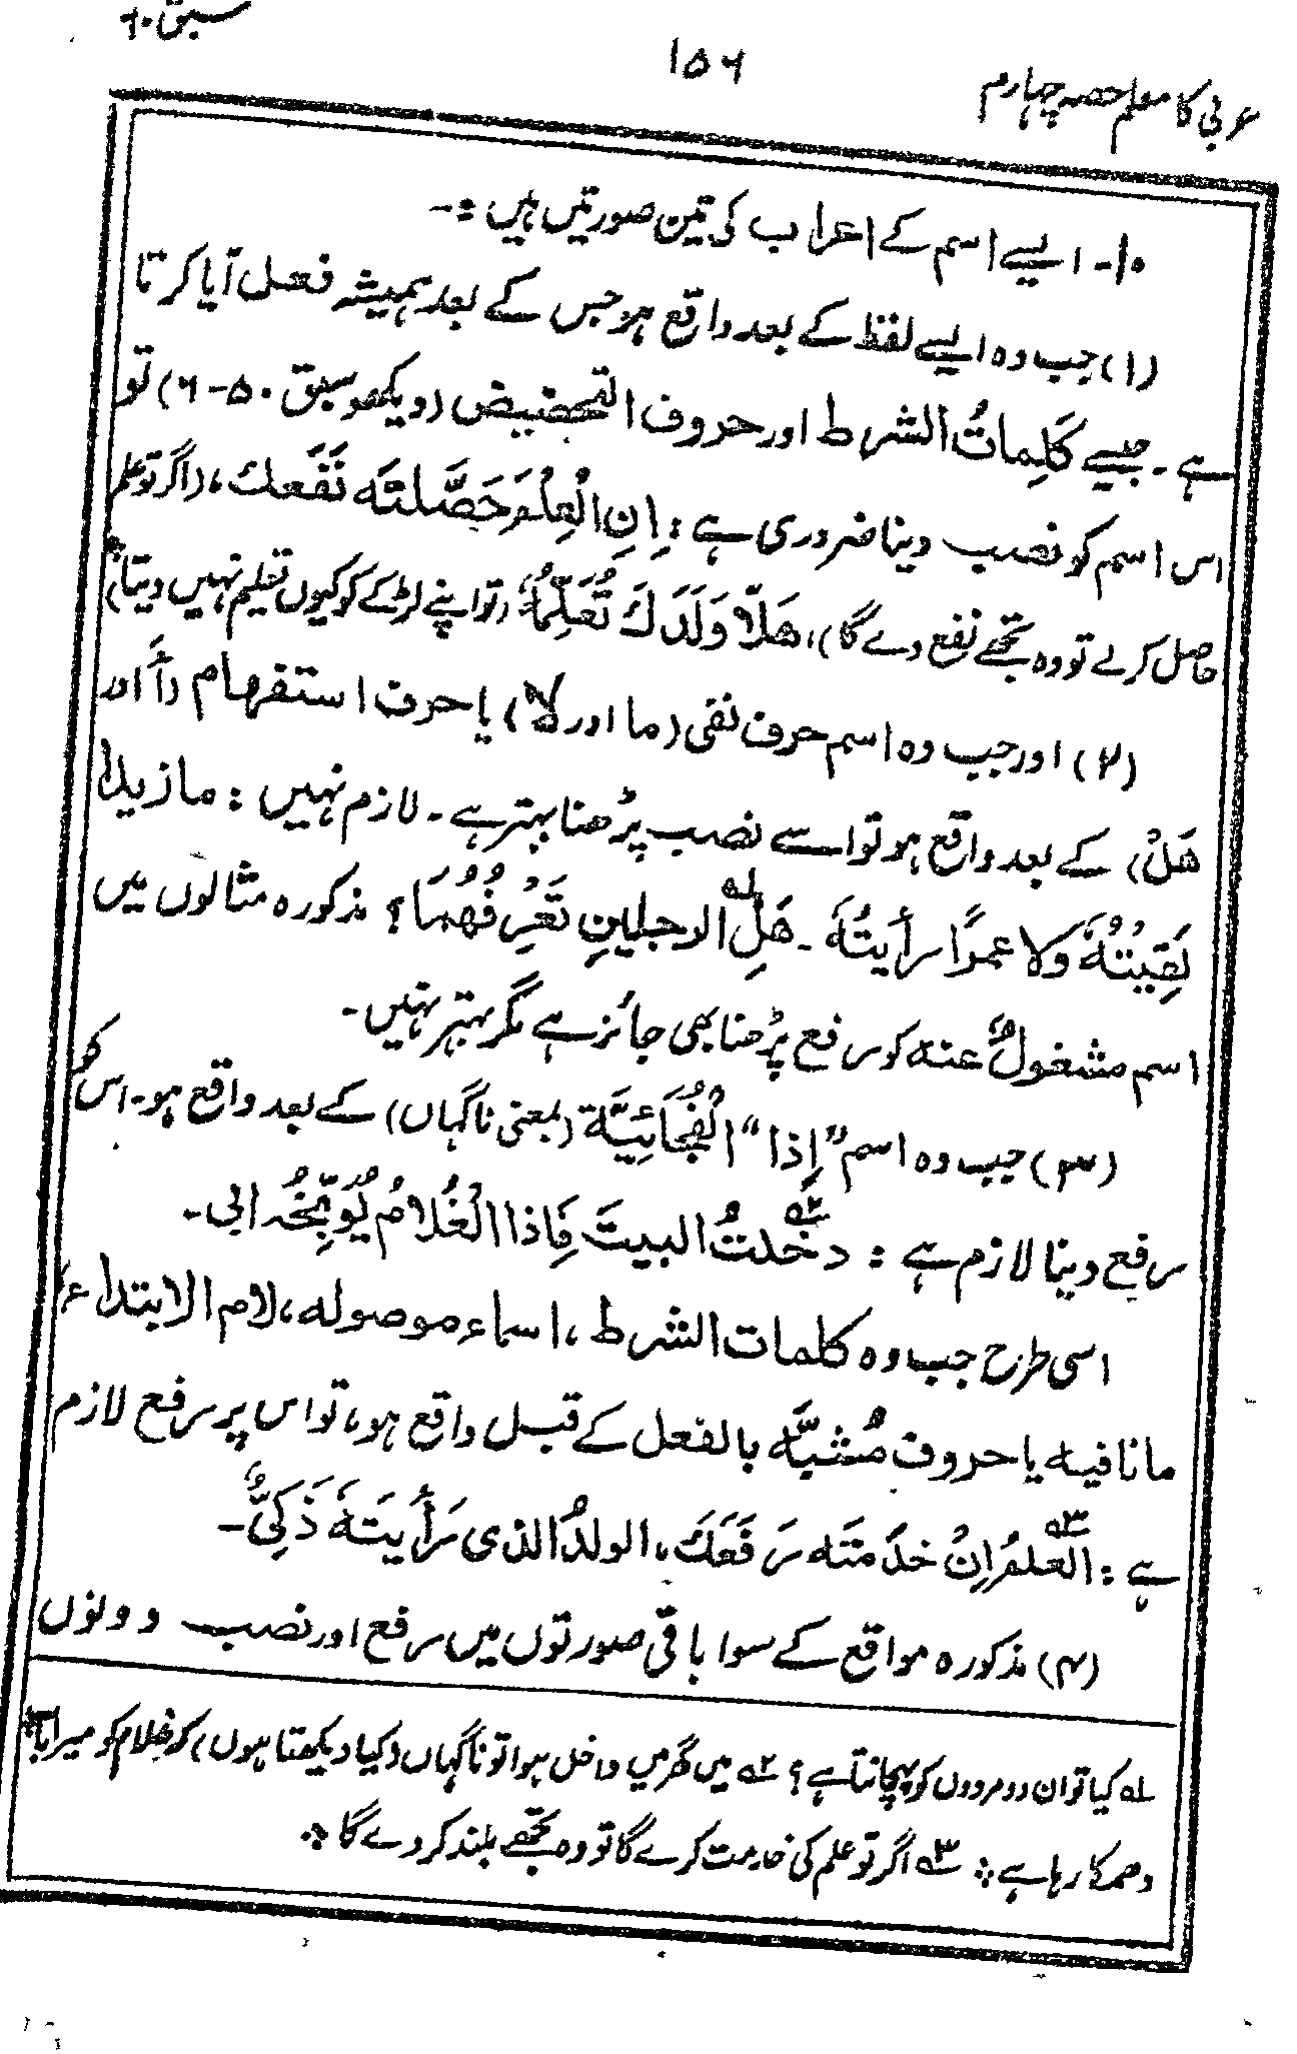 عربی کا معلم حصہ چہارم
۱۵۶
سبق ۶۰
۱۰- ایسے اسم کے اعراب کی تین صورتیں ہیں :-
(۱) جب وہ ایسے لفظ کے بعد واقع ہو جس کے بعد ہمیشہ فعل آیا کرتا
ہے۔ جیسے کَلِمَاتُ الشرط اور حروف التحضیض (دیکھو سبق ۵۰-۶) تو
اس اسم کو نصب دینا ضروری ہے : اِنِ الْعِلْمَ حَصَّلتَه نَفَعَك، (اگر تو علم
حاصل کرلے تو وہ تجھے نفع دے گا)، هَلَّا وَلَدَكَ تُعَلِّمُهٗ (تو اپنے لڑکے کو کیوں تعلیم نہیں دیتا)
(۲) اور جب وہ اسم حرف نفی (ما اور لا) یا حرف استفہام (أَ اور
هَلْ) کے بعد واقع ہو تو اسے نصب پڑھنا بہتر ہے۔ لازم نہیں : ما زیدًا
لَقِیْتُهٗ وَلا عمرًا رأیتُهٗ ۔ هَلِ الرجلینِ تَعْرِفُهُمَا؟ مذکورہ مثالوں میں
اسم مشغولٌ عنہ کو رفع پڑھنا بھی جائز ہے مگر بہتر نہیں۔
(۳) جب وہ اسم "إِذا" الْفُجَائِیَّة (بمعنی ناگہاں) کے بعد واقع ہو۔ اس کو
رفع دینا لازم ہے : دخلتُ البیتَ فَاِذا الْغُلَامُ یُوَبِّخُه ابی۔
اسی طرح جب وہ کلمات الشرط، اسماء موصولہ، لام الابتداء،
ما نافیہ یا حروف مُشَبَّہ بالفعل کے قبل واقع ہو، تو اس پر رفع لازم
ہے : العلمُ اِنْ خدَمتَه رَفَعَكَ، الولدُ الذی رَأَیتَهٗ ذَکِیٌّ۔
(۴) مذکورہ مواقع کے سوا باقی صورتوں میں رفع اور نصب دونوں
۱؎ کیا تو ان دو مردوں کو پہچانتا ہے؟ ۲؎ میں گھر میں داخل ہوا تو ناگہاں (کیا دیکھتا ہوں) کہ غلام کو میرا باپ
دھمکا رہا ہے؞ ۳؎ اگر تو علم کی خدمت کرے گا تو وہ تجھے بلند کر دے گا ؞